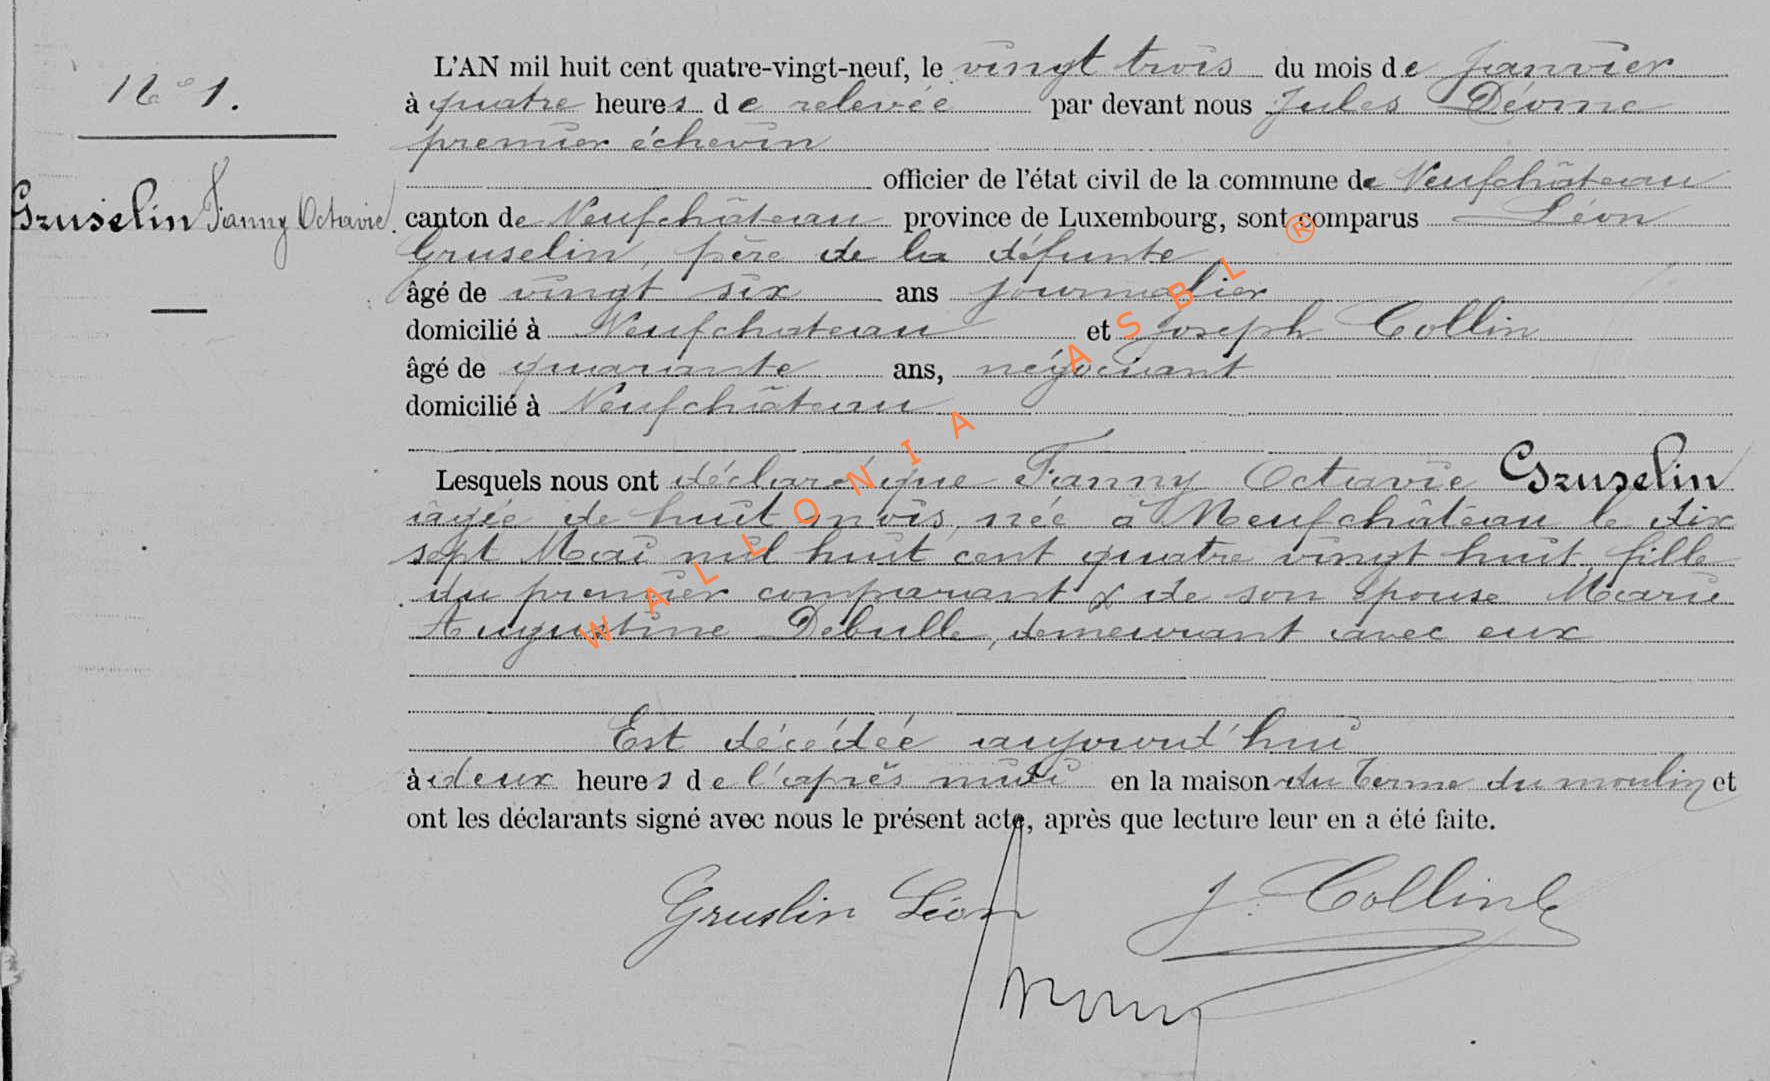 N° 1.
Gruselin Fanny Octavie.
L'AN mil huit cent quatre-vingt-neuf, le vingt trois du mois de Janvier
à quatre heures de relevée par devant nous Jules
premier échevin
officier de l'état civil de la commune de Neufchâteau
canton de Neufchâteau province de Luxembourg, sont comparus Léon
Gruselin, père de la défunte
âgé de vingt six ans journalier
domicilié à Neufchateau et Joseph Collin
âgé de quarante ans, négociant
domicilié à Neufchâteau
Lesquels nous ont déclaré que Fanny Octavie Gruselin
âgée de huit mois, née à Neufchâteau le dix
sept Mai mil huit cent quatre vingt huit, fille
du premier comparant & de son épouse Marie
Augustine Debulle, demeurant avec eux
Est décédée aujourd'hui
à deux heures de l'après midi en la maison du Terme du moulin et
ont les déclarants signé avec nous le présent acte, après que lecture leur en a été faite.
Gruslin Léon J. Collin
WALLONIA ASBL ®